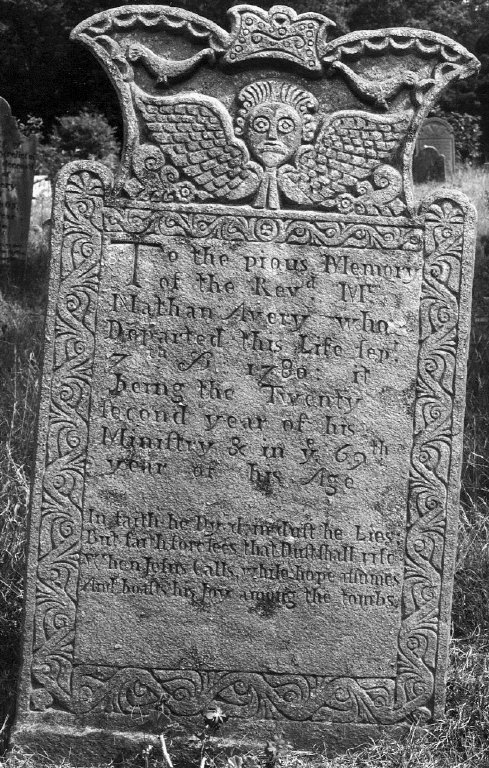 To the pious Memory
of the Revd. Mr.
Nathan Avery who
Departed this Life sept.
7th 1780: it
being the Twenty
second year of his
Ministry & in ye 69th
year of his Age
In faith he Dyed, in Dust he Lies;
But faith foresees that Dust shall rise
When Jesus Calls, while hope asumes
And boasts his Joy among the tombs.